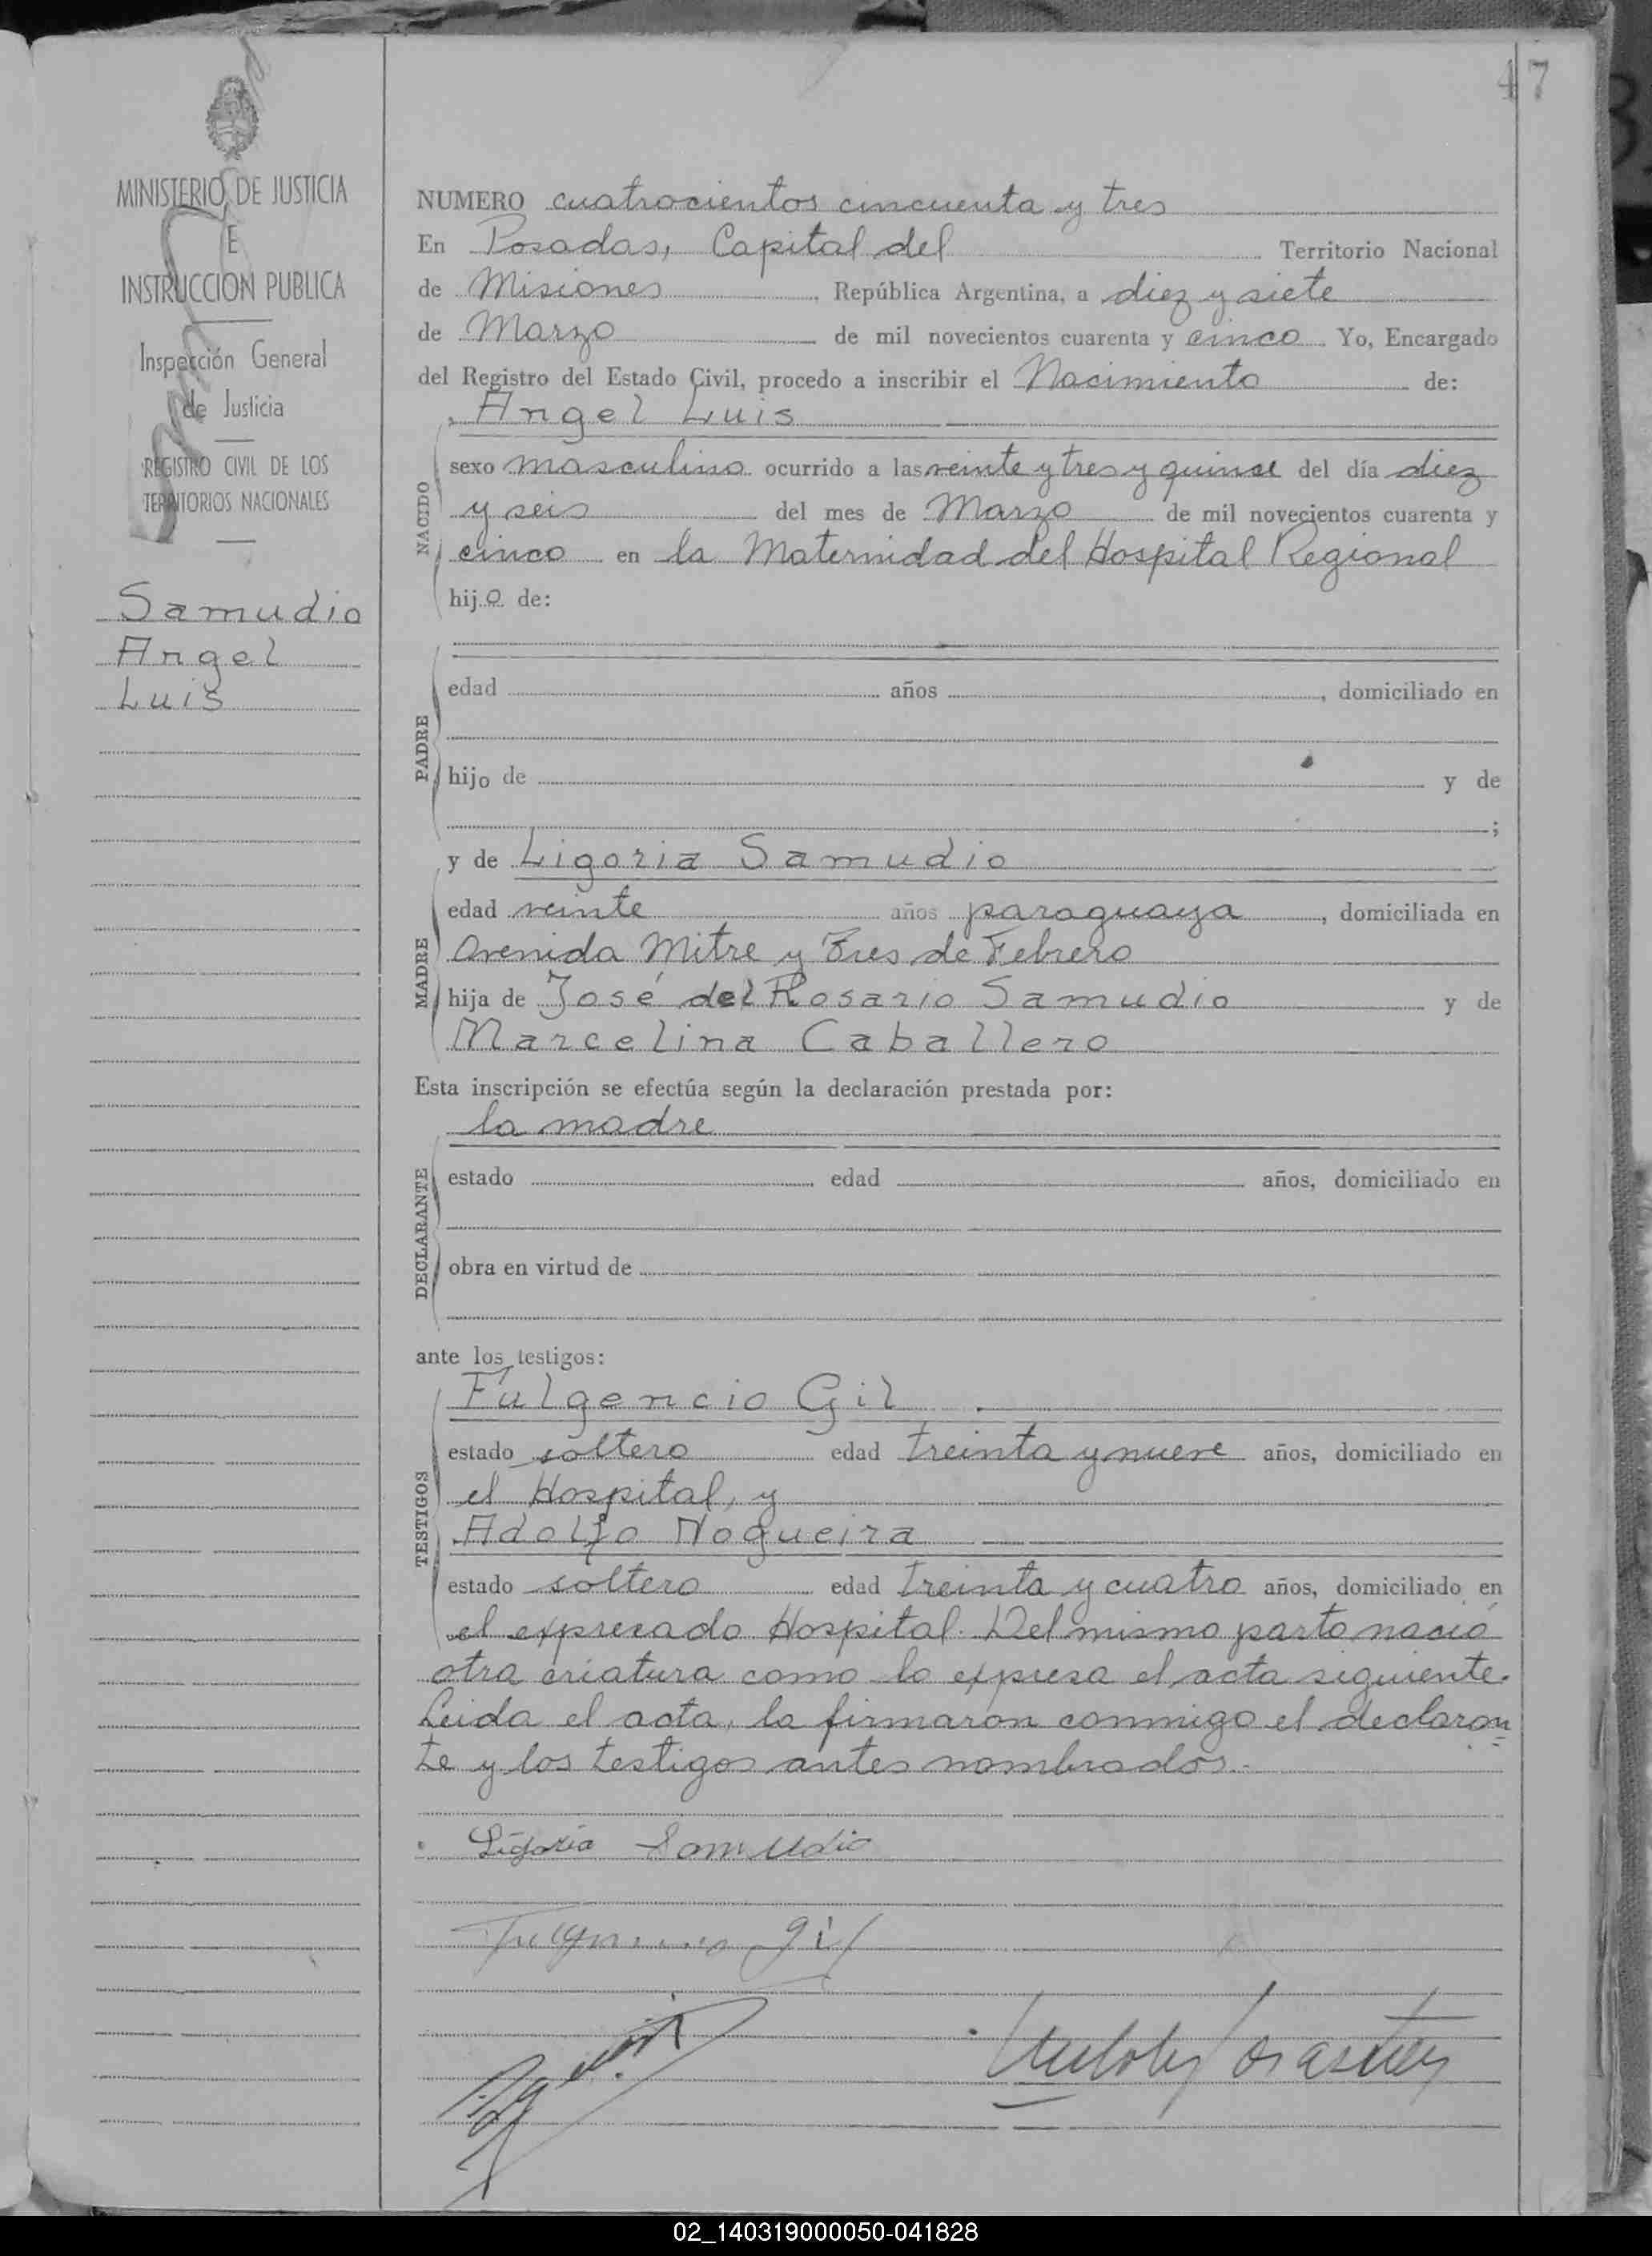 47
MINISTERIO DE JUSTICIA
E
INSTRUCCION PUBLICA
Inspección General
de Justicia
REGISTRO CIVIL DE LOS
TERRITORIOS NACIONALES
Samudio
Angel
Luis
NUMERO cuatrocientos cincuenta y tres
En Posadas, Capital del Territorio Nacional
de Misiones, República Argentina, a diez y siete
de Marzo de mil novecientos cuarenta y cinco. Yo, Encargado
del Registro del Estado Civil, procedo a inscribir el Nacimiento de:
Angel Luis
NACIDO
sexo masculino ocurrido a las veinte y tres y quince del día diez
y seis del mes de Marzo de mil novecientos cuarenta y
cinco en la Maternidad del Hospital Regional
hijo de:
PADRE
edad años , domiciliado en
hijo de y de
;
y de Ligoria Samudio
MADRE
edad veinte años paraguaya, domiciliada en
Avenida Mitre y Tres de Febrero
hija de José del Rosario Samudio y de
Marcelina Caballero
Esta inscripción se efectúa según la declaración prestada por:
la madre
DECLARANTE
estado edad años, domiciliado en
obra en virtud de
ante los testigos:
Fulgencio Gil
TESTIGOS
estado soltero edad treinta y nueve años, domiciliado en
el Hospital, y
Adolfo Nogueira
estado soltero edad treinta y cuatro años, domiciliado en
el expresado Hospital. Del mismo parto nació
otra criatura como lo expresa el acta siguiente.
Leida el acta, la firmaron conmigo el declaran
te y los testigos antes nombrados.-
Ligoria Samudio
Gil
02_140319000050-041828